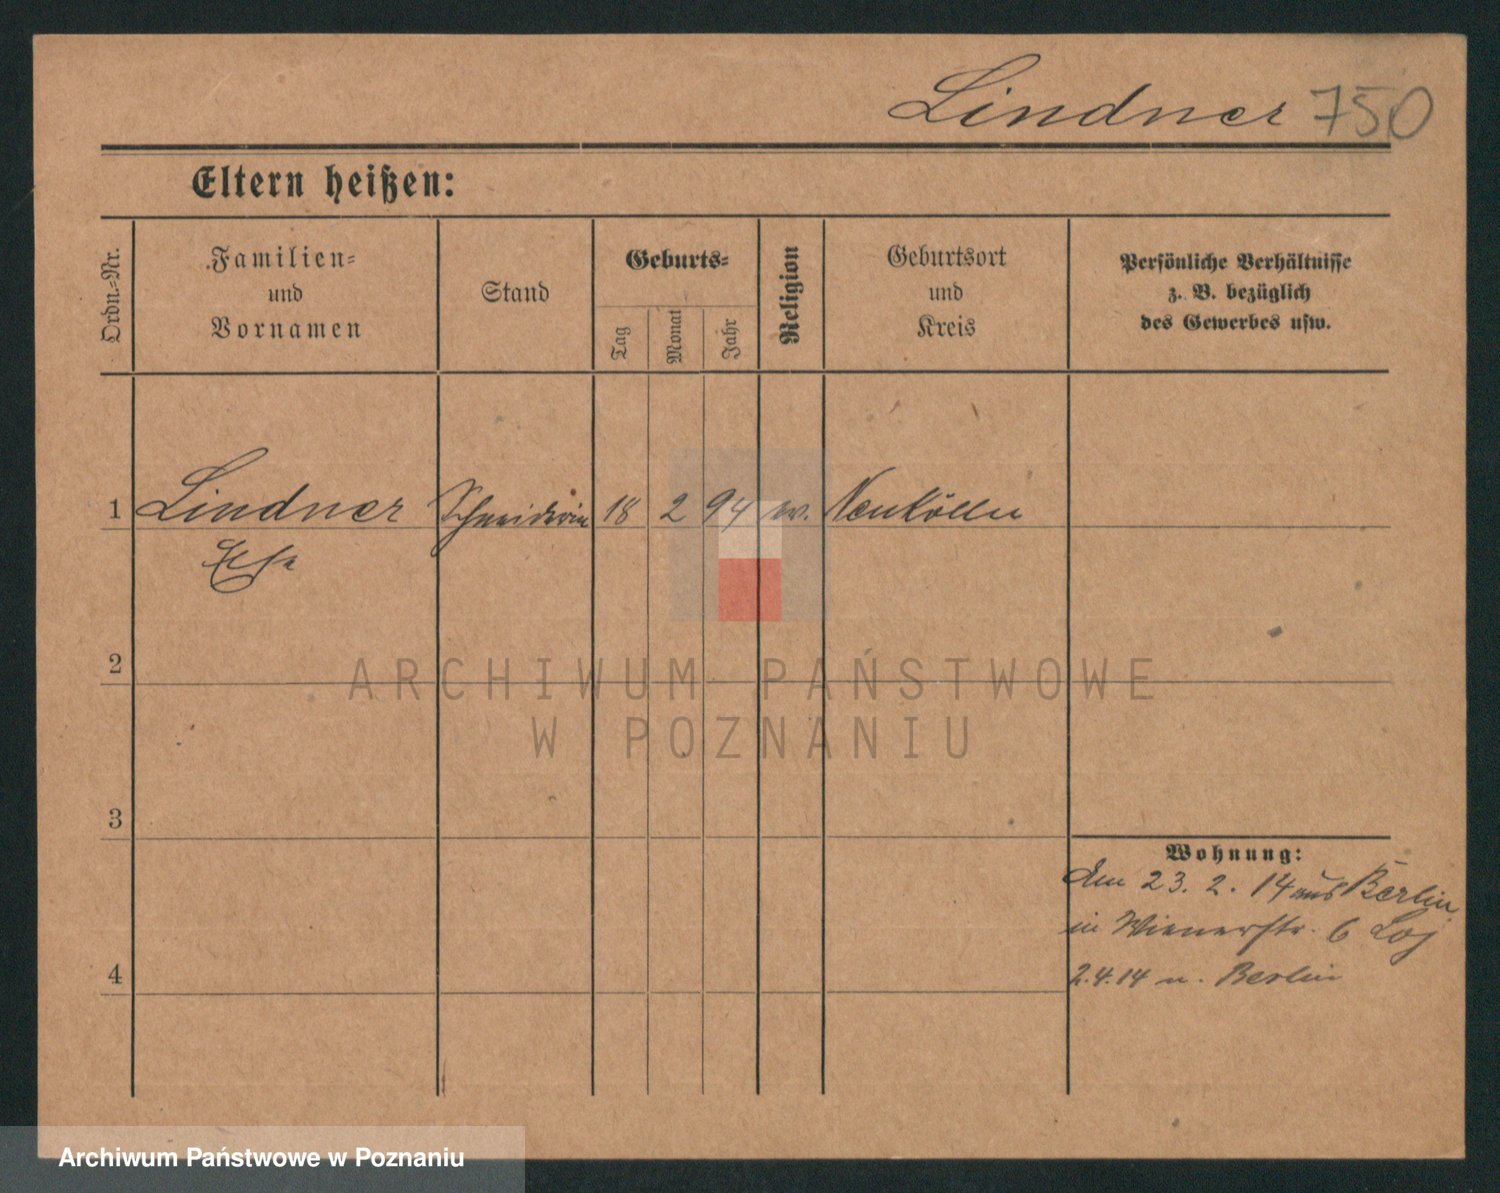 Lindner 750
Eltern heißen:
Ordn.-Nr.
Familien-
und
Vornamen
Stand
Geburts-
Tag
Monat
Jahr
Religion
Geburtsort
und
Kreis
Persönliche Verhältnisse
z. B. bezüglich
des Gewerbes usw.
1 Lindner Schneiderin 18 2 94 ev. Neukölln
Else
2
ARCHIWUM PAŃSTWOWE
W POZNANIU
3
Wohnung:
Am 23. 2. 14 aus Berlin
in Wienerstr. 6 Log
4
2.4.14 n. Berlin
Archiwum Państwowe w Poznaniu